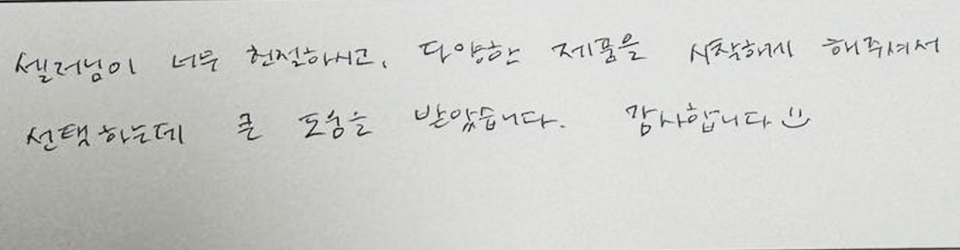 셀러님이 너무 친절하시고, 다양한 제품을 시착하게 해주셔서
선택하는데 큰 도움을 받았습니다. 감사합니다 :)